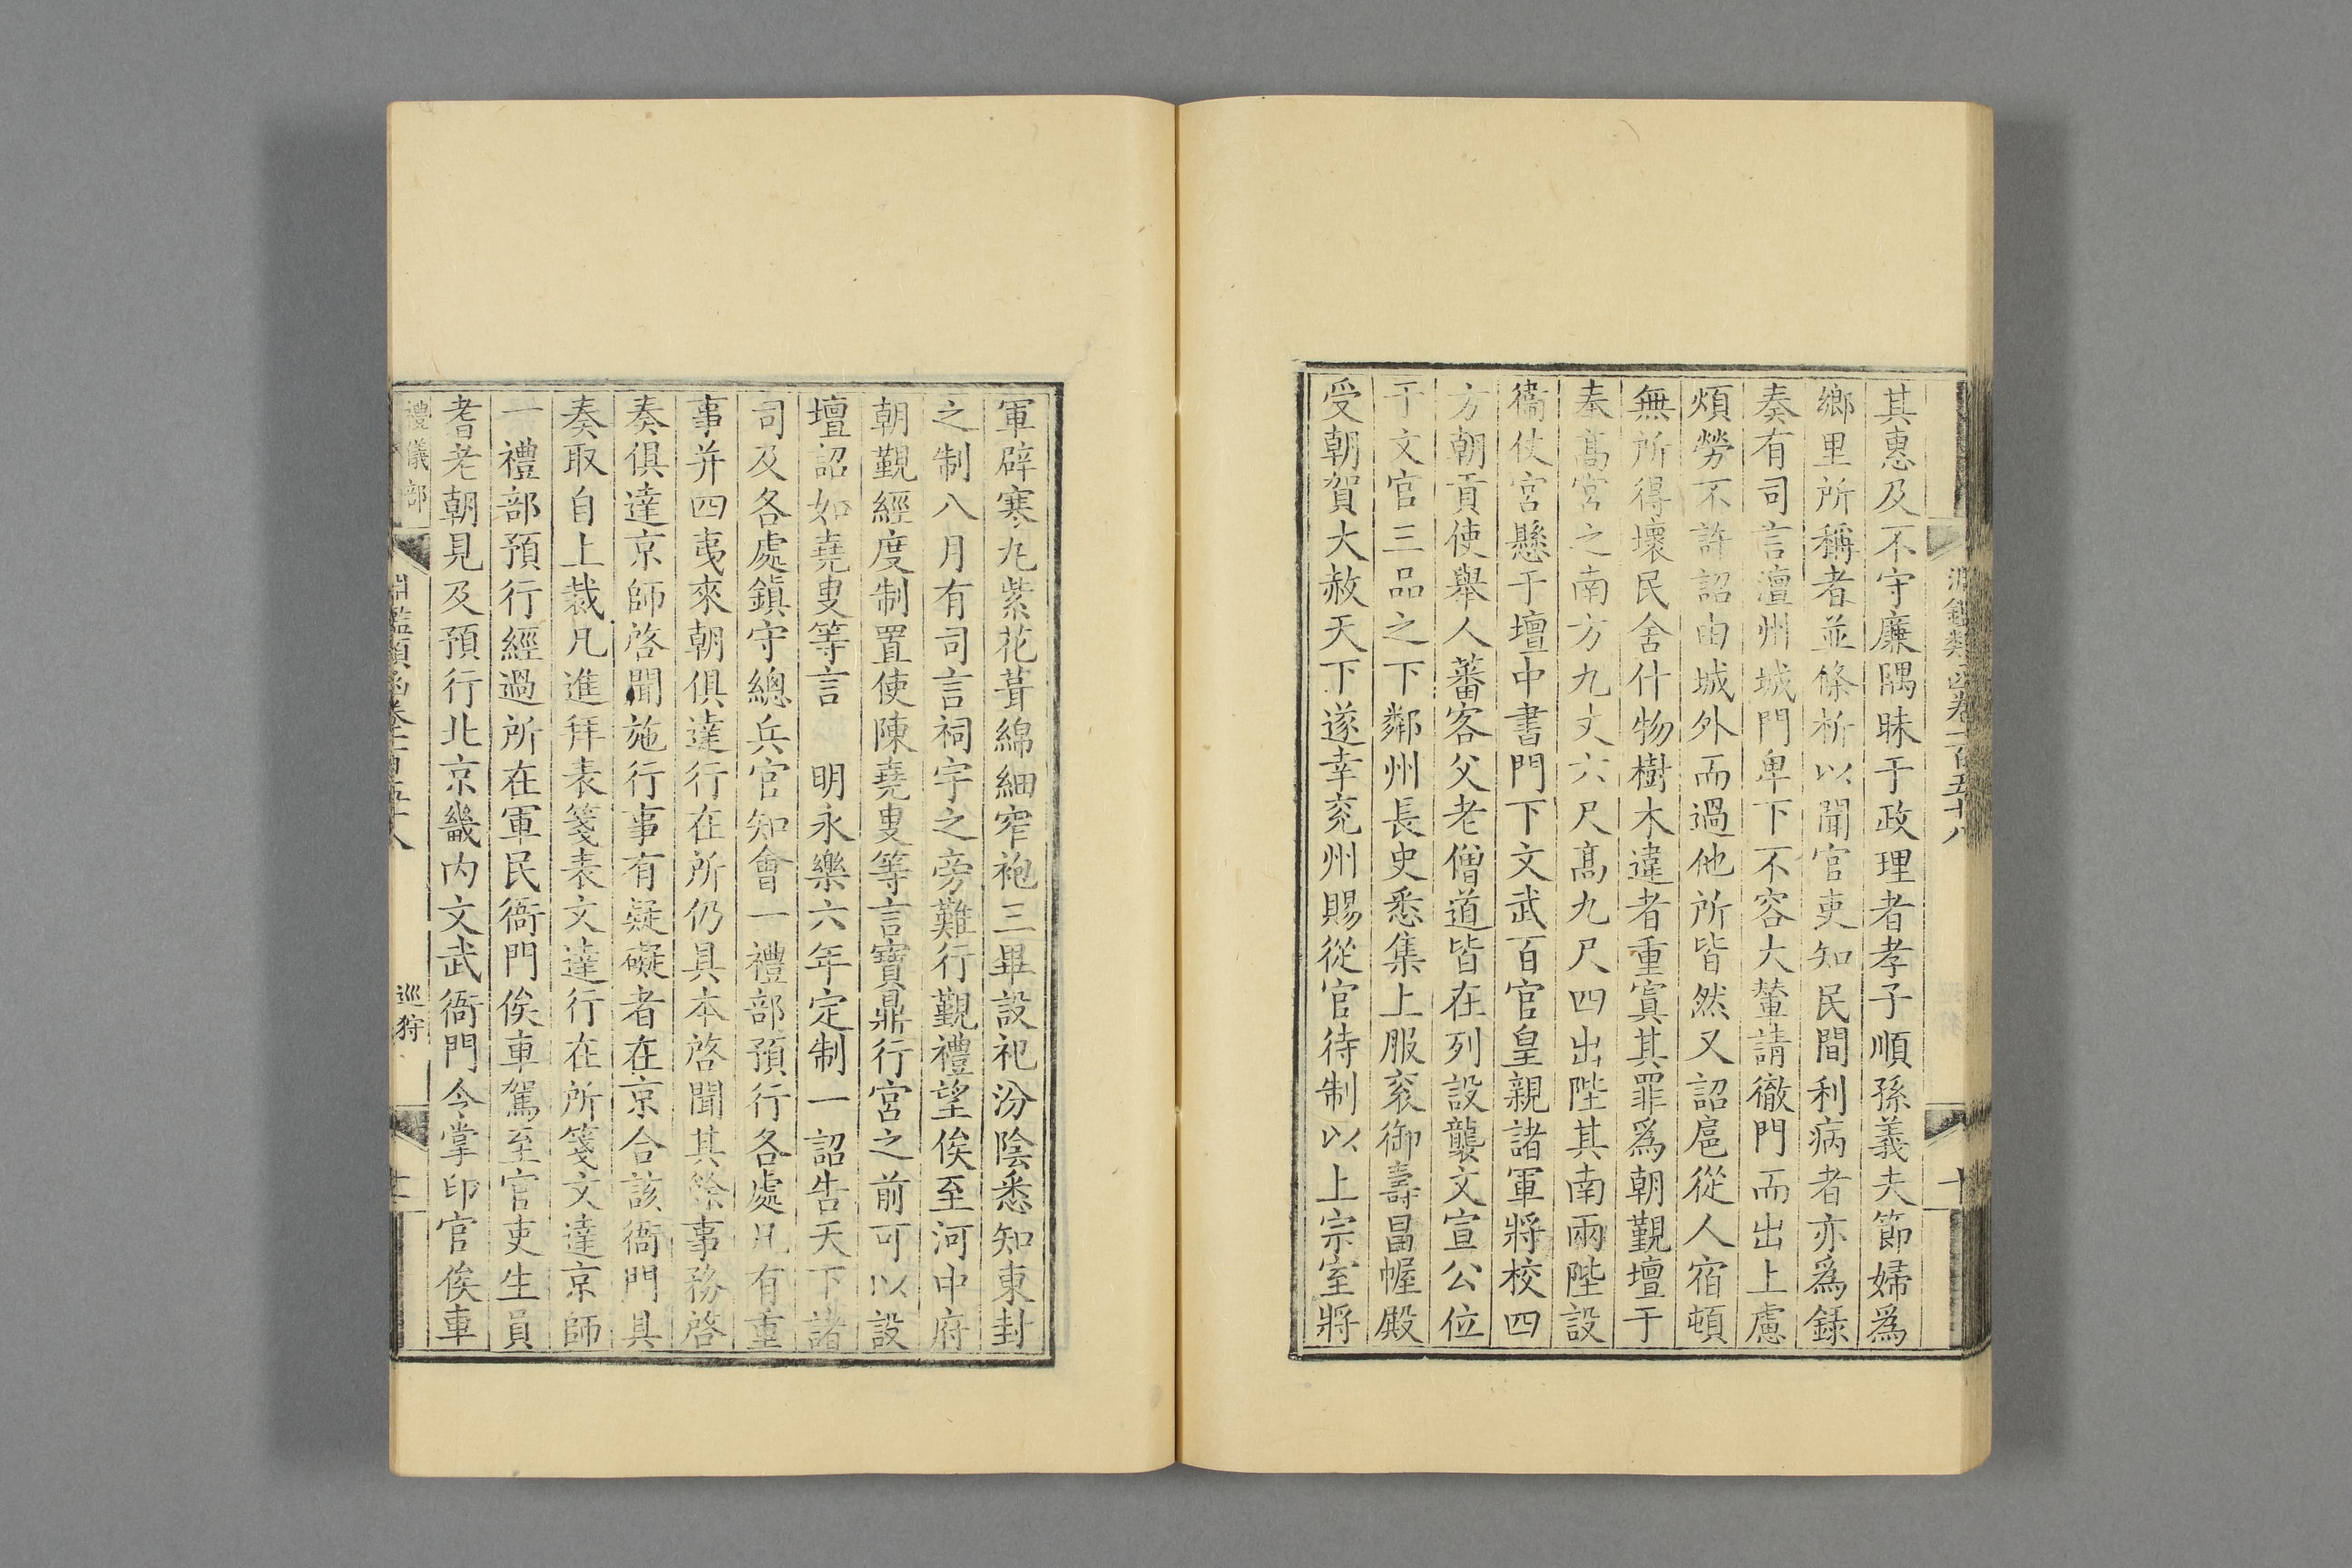 淵鑑類函卷一百五十八
十
其惠及不守廉隅昧于政理者孝子順孫義夫節婦爲
鄉里所稱者並條析以聞官吏知民間利病者亦爲錄
奏有司言澶州城門卑下不容大輦請徹門而出上慮
煩勞不許詔由城外而過他所皆然又詔扈從人宿頓
無所得壞民舍什物樹木違者重寘其罪爲朝覲壇于
奉高宮之南方九丈六尺高九尺四出陛其南兩陛設
衞仗宮懸于壇中書門下文武百官皇親諸軍將校四
方朝貢使舉人蕃客父老僧道皆在列設襲文宣公位
于文官三品之下鄰州長史悉集上服衮御壽昌幄殿
受朝賀大赦天下遂幸兖州賜從官待制以上宗室將
軍辟寒丸紫花茸綿細窄袍三畢設祀汾陰悉知東封
之制八月有司言祠宇之旁難行覲禮望俟至河中府
朝覲經度制置使陳堯叟等言寶鼎行宮之前可以設
壇詔如堯叟等言 明永樂六年定制一詔告天下諸
司及各處鎭守總兵官知會一禮部預行各處凡有重
事并四夷來朝俱達行在所仍具本啓聞其餘事務啓
奏俱達京師啓聞施行事有疑礙者在京合該衙門具
奏取自上裁凡進拜表箋表文達行在所箋文達京師
一禮部預行經過所在軍民衙門俟車駕至官吏生員
耆老朝見及預行北京畿内文武衙門令掌印官俟車
禮儀部
淵鑑類函卷一百五十八
巡狩
十一